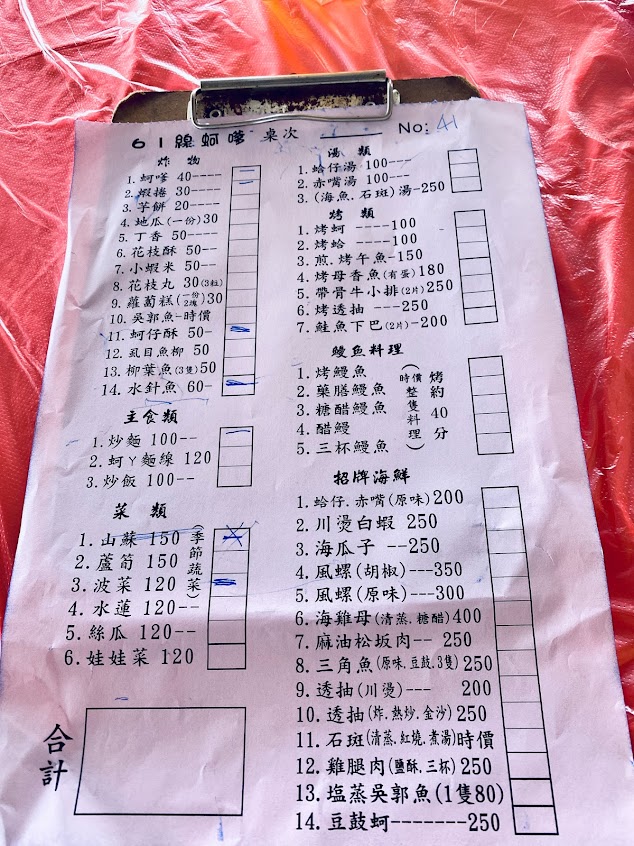 61線蚵嗲 桌次 No: 41
炸 物
1. 蚵嗲 40----
2. 蝦捲 30----
3. 芋餅 20----
4. 地瓜(一份)30
5. 丁香 50----
6. 花枝酥 50--
7. 小蝦米 50--
8. 花枝丸 30(3粒)
9. 蘿蔔糕(一份2塊)30
10. 吳郭魚-時價
11. 蚵仔酥 50-
12. 虱目魚柳 50
13. 柳葉魚(3隻)50
14. 水針魚 60-
主食類
1. 炒麵 100--
2. 蚵ㄚ麵線 120
3. 炒飯 100--
菜 類
(季節蔬菜)
1. 山蘇 150
2. 蘆筍 150
3. 波菜 120
4. 水蓮 120--
5. 絲瓜 120--
6. 娃娃菜 120
合計
湯 類
1. 蛤仔湯 100---
2. 赤嘴湯 100---
3. (海魚.石斑)湯-250
烤 類
1. 烤蚵 ----100
2. 烤蛤 ----100
3. 煎.烤午魚-150
4. 烤母香魚(有蛋)180
5. 帶骨牛小排(2片)250
6. 烤透抽 ---250
7. 鮭魚下巴(2片)-200
鰻魚料理
1. 烤鰻魚
2. 藥膳鰻魚
3. 糖醋鰻魚
4. 醋鰻
5. 三杯鰻魚
(時價整隻料理)
烤約40分
招牌海鮮
1. 蛤仔.赤嘴(原味)200
2. 川燙白蝦 250
3. 海瓜子 --250
4. 風螺(胡椒)---350
5. 風螺(原味)---300
6. 海雞母(清蒸.糖醋)400
7. 麻油松坂肉-- 250
8. 三角魚(原味.豆鼓.3隻)250
9. 透抽(川燙)--- 200
10. 透抽(炸.熱炒.金沙)250
11. 石斑(清蒸.紅燒.煮湯)時價
12. 雞腿肉(鹽酥.三杯)250
13. 塩蒸吳郭魚(1隻80)
14. 豆鼓蚵--------250